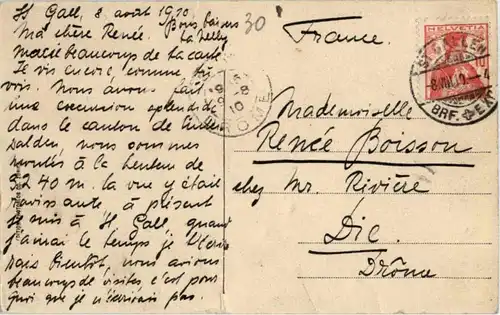 St Gall, 8 août 1910.
Bons baisers
Ma chère Renée. La Nelly
Merci beaucoup de ta carte
Je vis encore, comme tu
vois. Nous avons fait
une excursion splendide
dans le canton de Unter
walden, nous sommes
montés à la hauteur de
3240 m. la vue y était
ravissante, à présent
je suis à St Gall, quand
j'aurai le temps je t'écri
rais bientôt, nous avions
beaucoup de visites c'est pour
quoi que je n'écrivais pas.
30
France.
Mademoiselle
Renée Boisson
chez Mr Rivière
Die.
Drôme
HELVETIA
10
ST. GALLEN
8.VIII.10.-4
BRF. EXP.
8-8
10
DROME